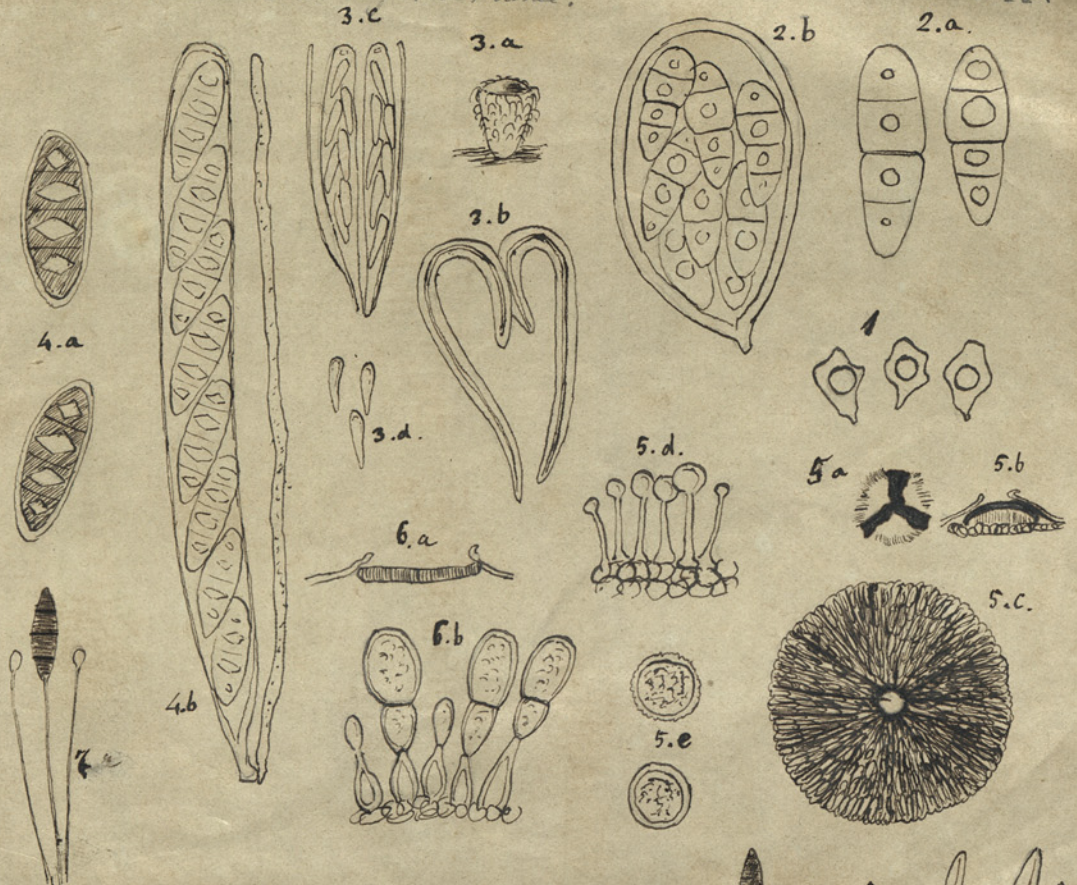 3.c
3.a
2.b
2.a.
3.b
1
4.a
3.d.
5.d.
5a
5.b
6.a
5.c.
6.b
4.b
5.e
7